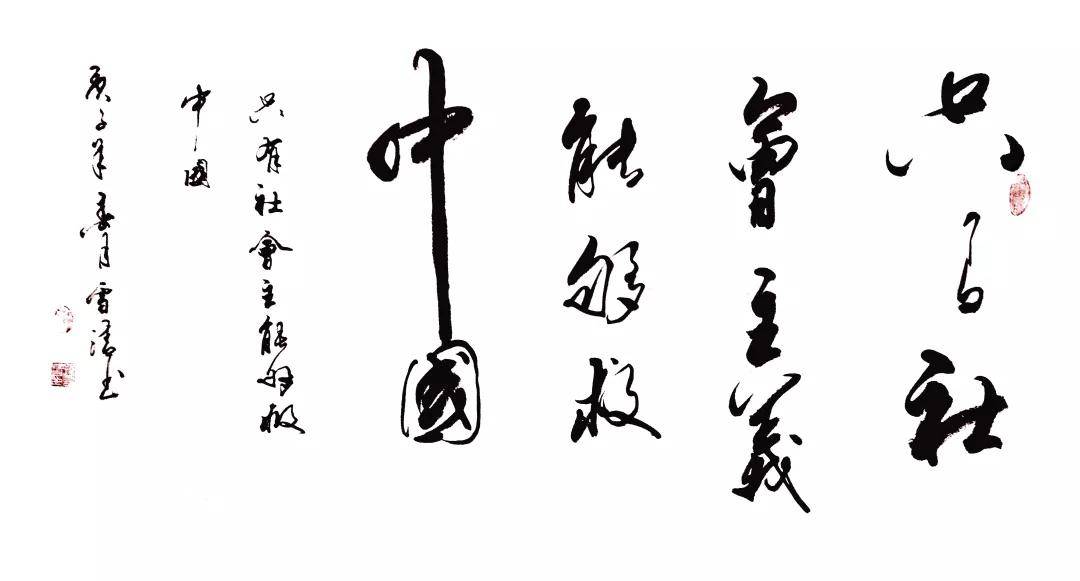 只有社
會主義
能够救
中國
只有社會主能够救
中國
庚子年春月雪书